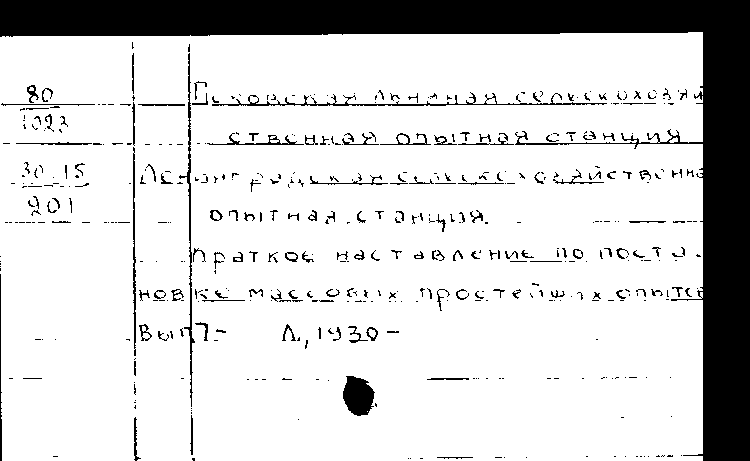 80
1023
Псковская льняная сельскохозяй
ственная опытная станция
30.15
201
Ленинградская сельскохозяйственна
опытная станция.
Краткое наставление по поста-
новке массовых простейших опытов
Вып 7- Л., 1930-